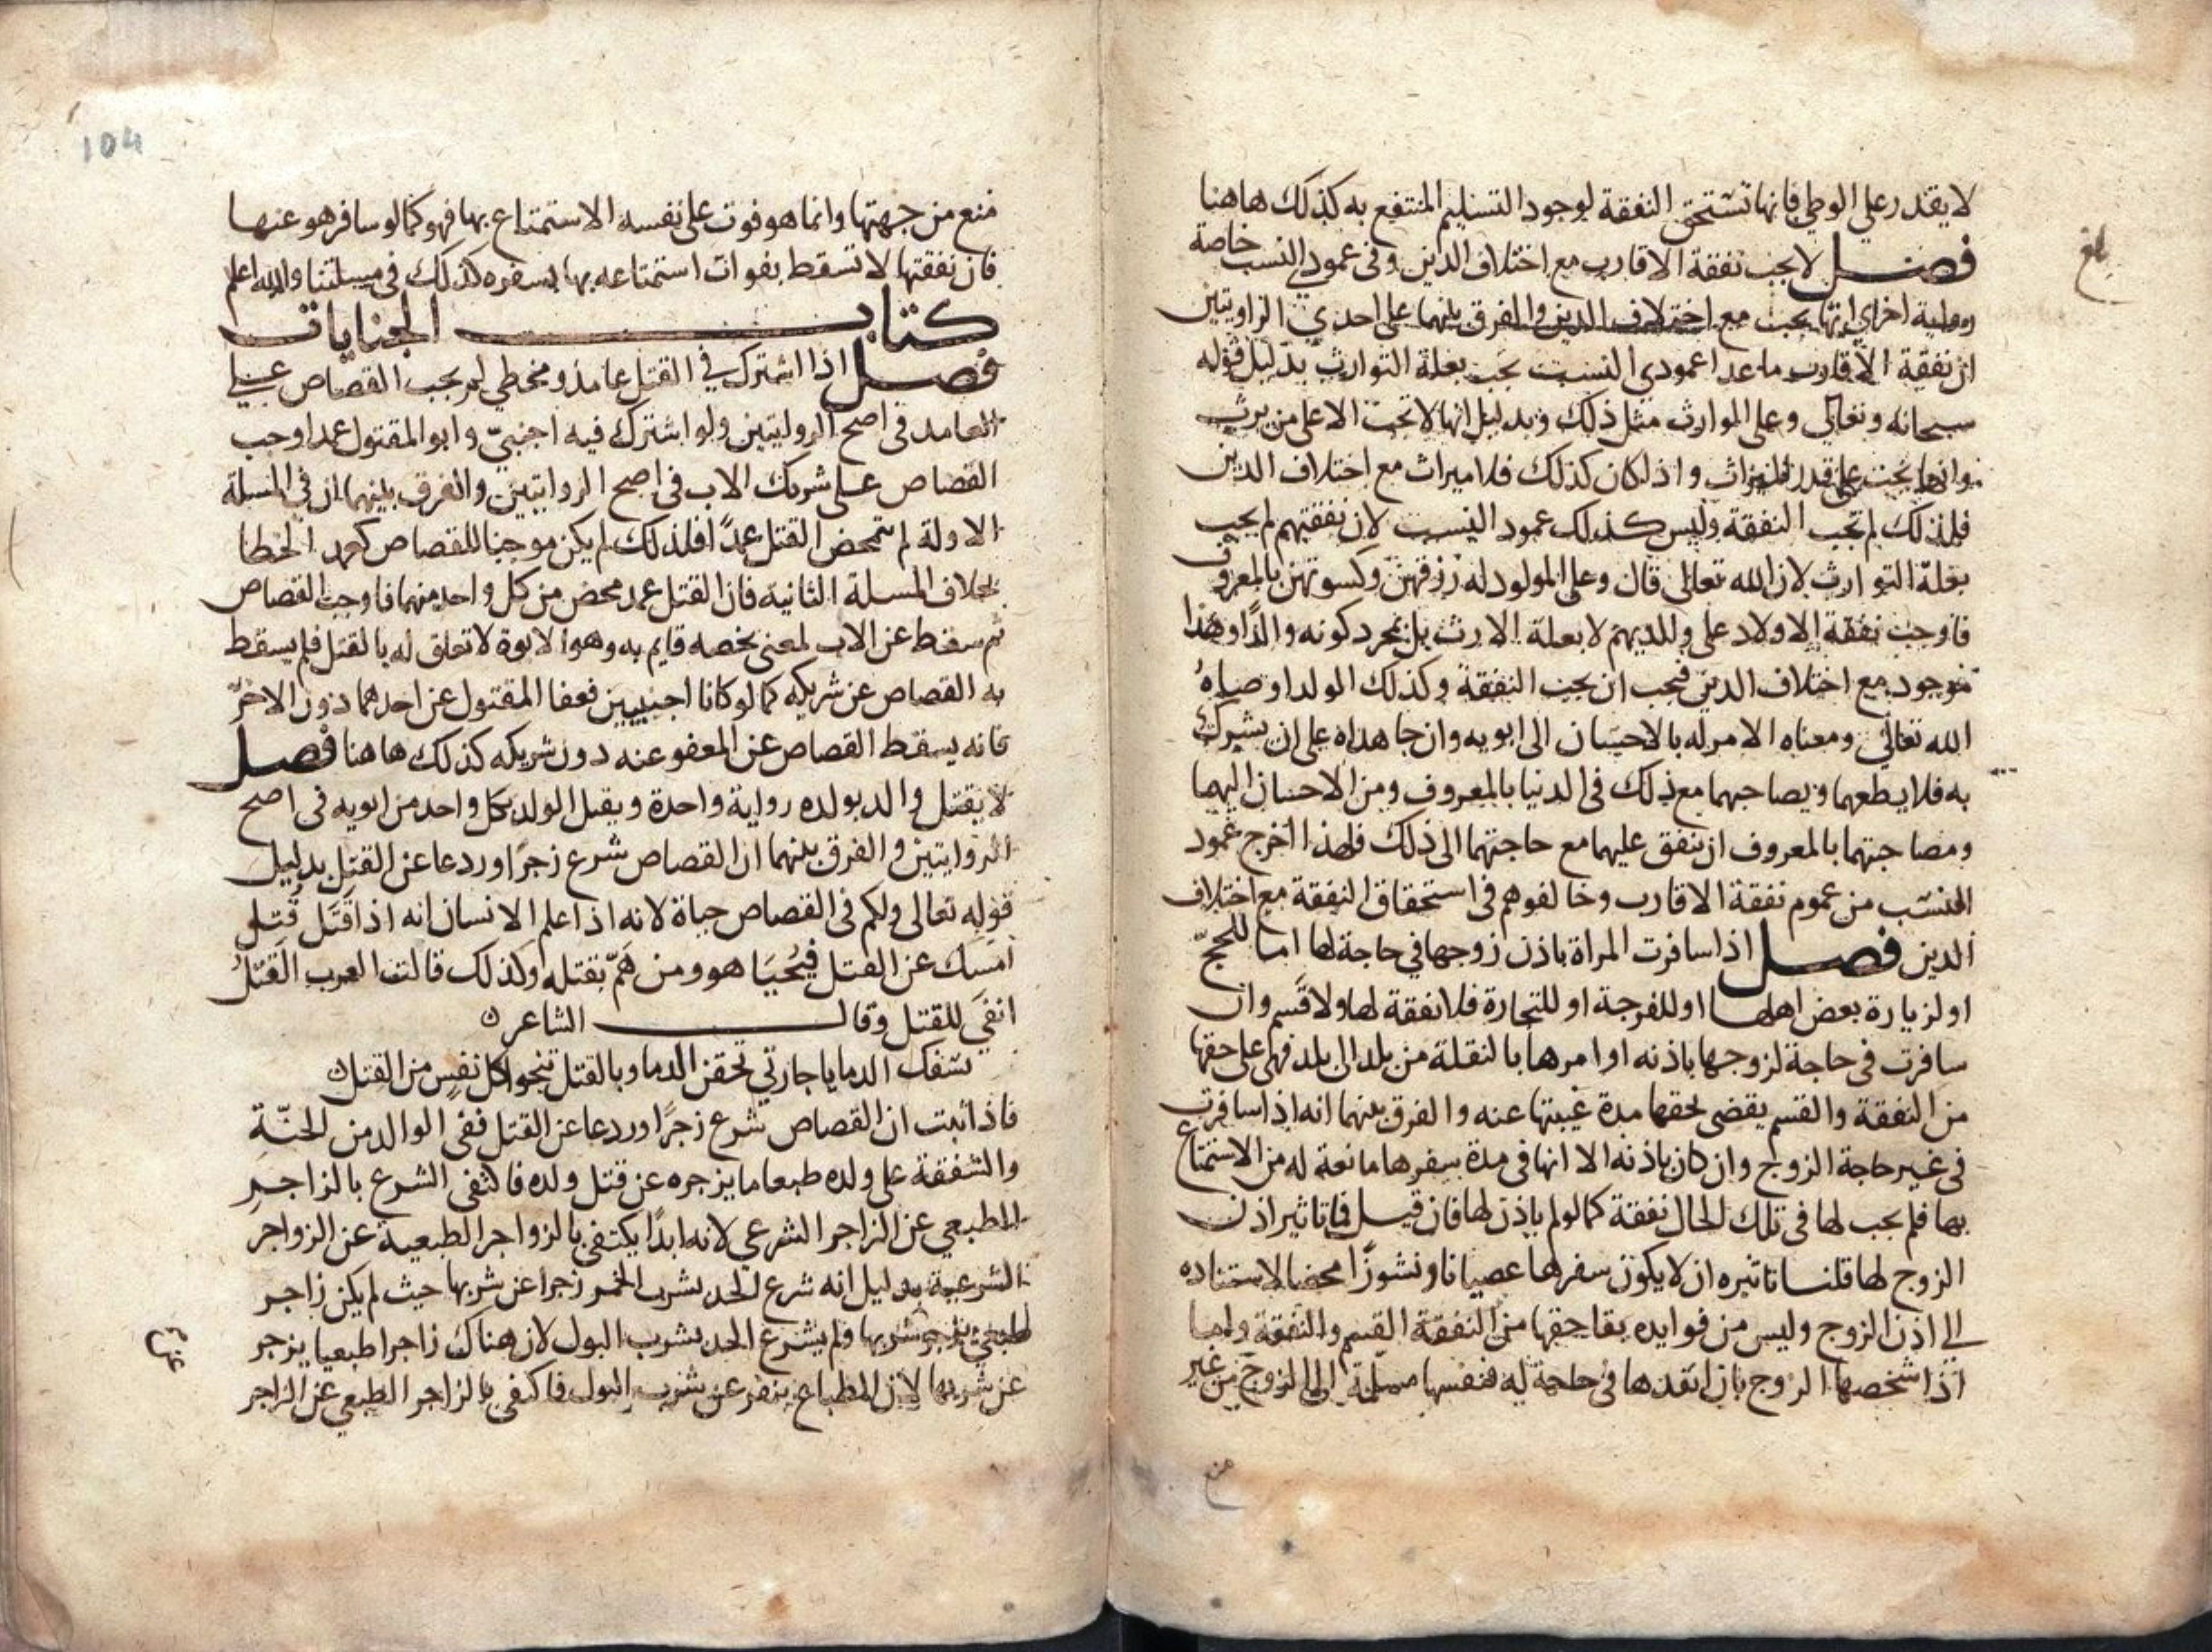 لا يقدر علي الوطي فانها تستحق النفقة لوجود التسليم المنتفع به كذلك هاهنا
فصل لا يجب نفقة الاقارب مع اختلاف الدين وفى عمودي النسب خاصة
بلغ
رواية اخراي انها يجب مع اختلاف الدين والفرق بينهما على احدي الراويتين
ان نفقة الاقارب ما عدا عمودي النسب تجب بعلة التوارث بدليل قوله
سبحانه وتعالى وعلى الوارث مثل ذلك وبدليل انها لا تجب الا على من يرث
وانها يجب على قدر الميراث واذا كان كذلك فلا ميراث مع اختلاف الدين
فلذلك لم تجب النفقة وليس كذلك عمود النسب لان نفقتهم لم يجب
بعلة التوارث لان الله تعالى قال وعلى المولود له رزقهن وكسوتهن بالمعروف
فاوجب نفقة الاولاد على والديهم لا بعلة الارث بل بمجرد كونه والدًا وهذا
موجود مع اختلاف الدين فيجب ان يجب النفقة وكذلك الولد اوصاه
الله تعالى ومعناه الامر له بالاحسان الى ابويه وان جاهداه على ان يشرك
به فلا يطعهما ويصاحبهما مع ذلك فى الدنيا بالمعروف ومن الاحسان اليهما
ومصاحبتهما بالمعروف ان ينفق عليهما مع حاجتهما الى ذلك فلهذا اخرج عمود
النسب من عموم نفقة الاقارب وخالفوهم فى استحقاق النفقة مع اختلاف
الدين فصل اذا سافرت المراة باذن زوجها في حاجة لها اما للحج
او لزيارة بعض اهلها او للفرجة او للتجارة فلا نفقة لها ولا قسم وان
سافرت فى حاجة لزوجها باذنه او امرها بالنقلة من بلد الى بلد فهى على حقها
من النفقة والقسم يقضى بحقها مدة غيبتها عنه والفرق بينهما انه اذا سافرت
فى غير حاجة الزوج وان كان باذنه الا انها فى مدة سفرها مانعة له من الاستمتاع
بها فلم يجب لها فى تلك الحال نفقة كما لو لم ياذن لها فان قيل فما تاثير اذن
الزوج لها قلنا تاثيره ان لا يكون سفرها عصيانا ونشوزًا محضا لاستناده
الى اذن الزوج وليس من فوايده بقا حقها من النفقة القسم والنفقة واما
اذا شخصها الزوج بان انفدها فى حاجة له فنفسها مسلمة الى الزوج من غير
منع
104
منع من جهتها وانما هو فوت على نفسه الاستمتاع بها فهو كما لو سافر هو عنها
فان نفقتها لا تسقط بفوات استمتاعه بها بسفره كذلك فى مسلتنا والله اعلم
كتاب الجنايات
فصل اذا اشترك في القتل عامد ومخطي لم يجب القصاص على
العامد فى اصح الروايتين ولو اشترك فيه اجنبيّ وابو المقتول عمدا وجب
القصاص على شريك الاب فى اصح الروايتين والفرق بينهما ان فى المسلة
الاولة لم يتمحض القتل عمدًا فلذلك لم يكن موجبا للقصاص كعمد الخطا
بخلاف المسلة الثانية فان القتل عمد محض من كل واحد منهما فاوجب القصاص
ثم سقط عن الاب لمعنى يخصه قايم به وهو الابوة لا تعلق له بالقتل فلم يسقط
به القصاص عن شريكه كما لو كانا اجنبيين فعفا المقتول عن احدهما دون الاخر
فانه يسقط القصاص عن المعفو عنه دون شريكه كذلك هاهنا فصل
لا يقتل والد بولده رواية واحدة ويقبل الولد بكل واحد من ابويه فى اصح
الروايتين والفرق بينهما ان القصاص شرع زجرًا وردعا عن القتل بدليل
قوله تعالى ولكم فى القصاص حياة لانه اذا علم الانسان انه اذا قَتَل قُتل
امسك عن القتل فيُحيَا هو ومن هَمّ بقتله ولذلك قالت العرب القَتلُ
انفَى للقتل وقال الشاعر
بسفك الدما يا جارتي تحقن الدما وبالقتل تنجوا كل نفس من القتل
فاذا ثبت ان القصاص شرع زجرًا وردعا عن القتل ففى الوالد من الحنّة
والشفقة على ولده طبعا ما يزجره عن قتل ولده فاكتفى الشرع بالزاجر
الطبعي عن الزاجر الشرعي لانه ابدًا يكتفى بالزواجر الطبعية عن الزواجر
الشرعية بدليل انه شرع الحد بشرب الخمر زجرا عن شربها حيث لم يكن زاجر
طبعي يزجر شربها ولم يشرع الحد بشرب البول لان هناك زاجرا طبعيا يزجر
عن شربها لان الطباع ينفر عن شرب البول فاكتفى بالزاجر الطبعي عن الزاجر